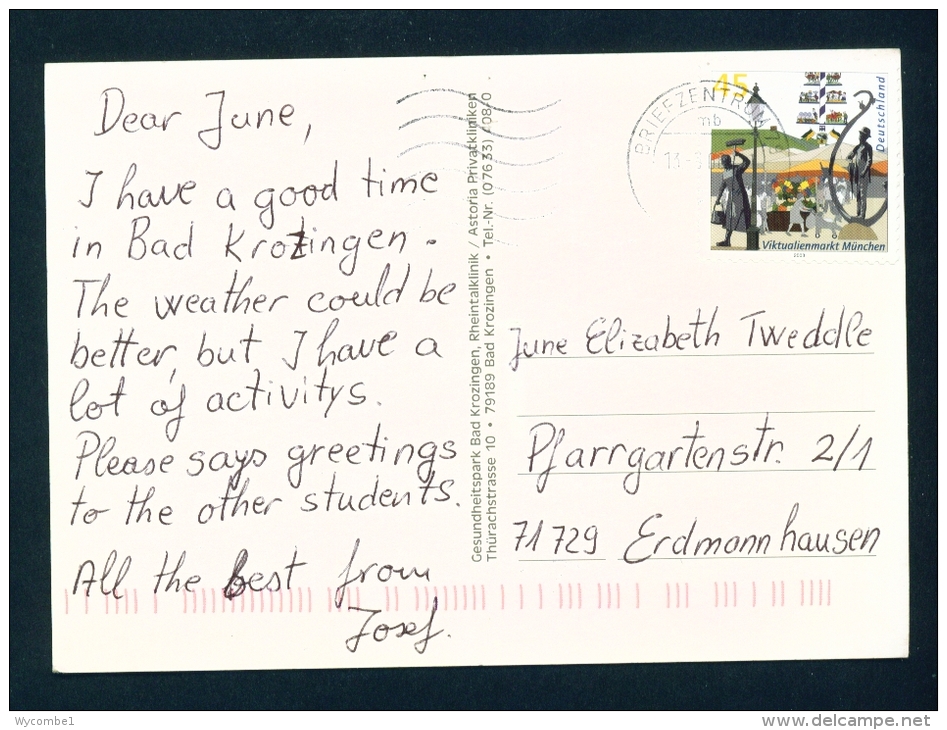 Dear June,
I have a good time
in Bad Krozingen.
The weather could be
better, but I have a
lot of activitys.
Please says greetings
to the other students.
All the best from
Josef.
Gesundheitspark Bad Krozingen, Rheintalklinik / Astoria Privatkliniken
Thürachstrasse 10 • 79189 Bad Krozingen • Tel.-Nr. (07633) 408-0
BRIEFZENTRUM
mb
45
Deutschland
Viktualienmarkt München
2003
June Elizabeth Tweddle
Pfarrgartenstr. 2/1
71729 Erdmannhausen
Wycombe1
www.delcampe.net